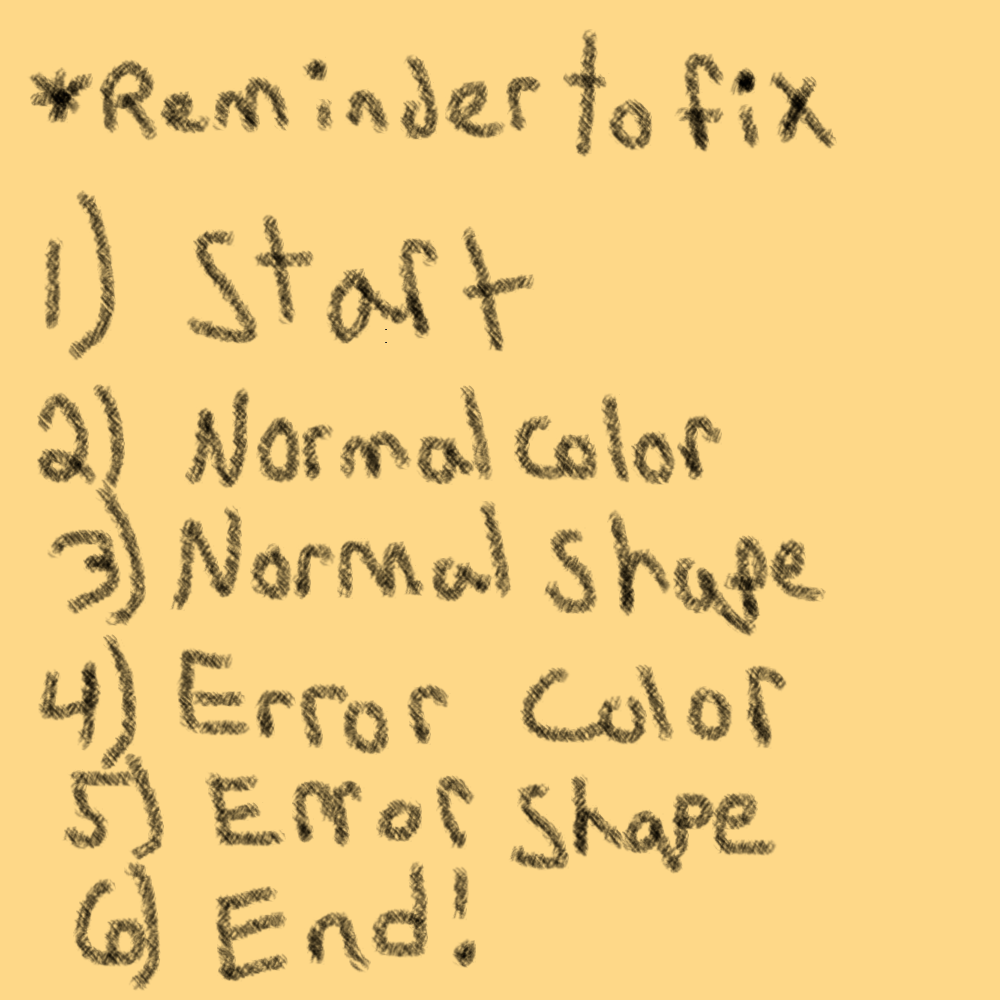 *Reminder to fix
1) Start
2) Normal color
3) Normal Shape
4) Error Color
5) Error Shape
6) End!